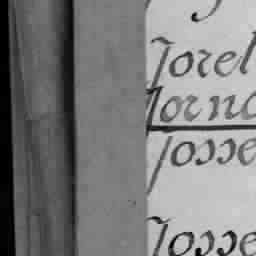 Jorel
Jorna
Josse
Josse